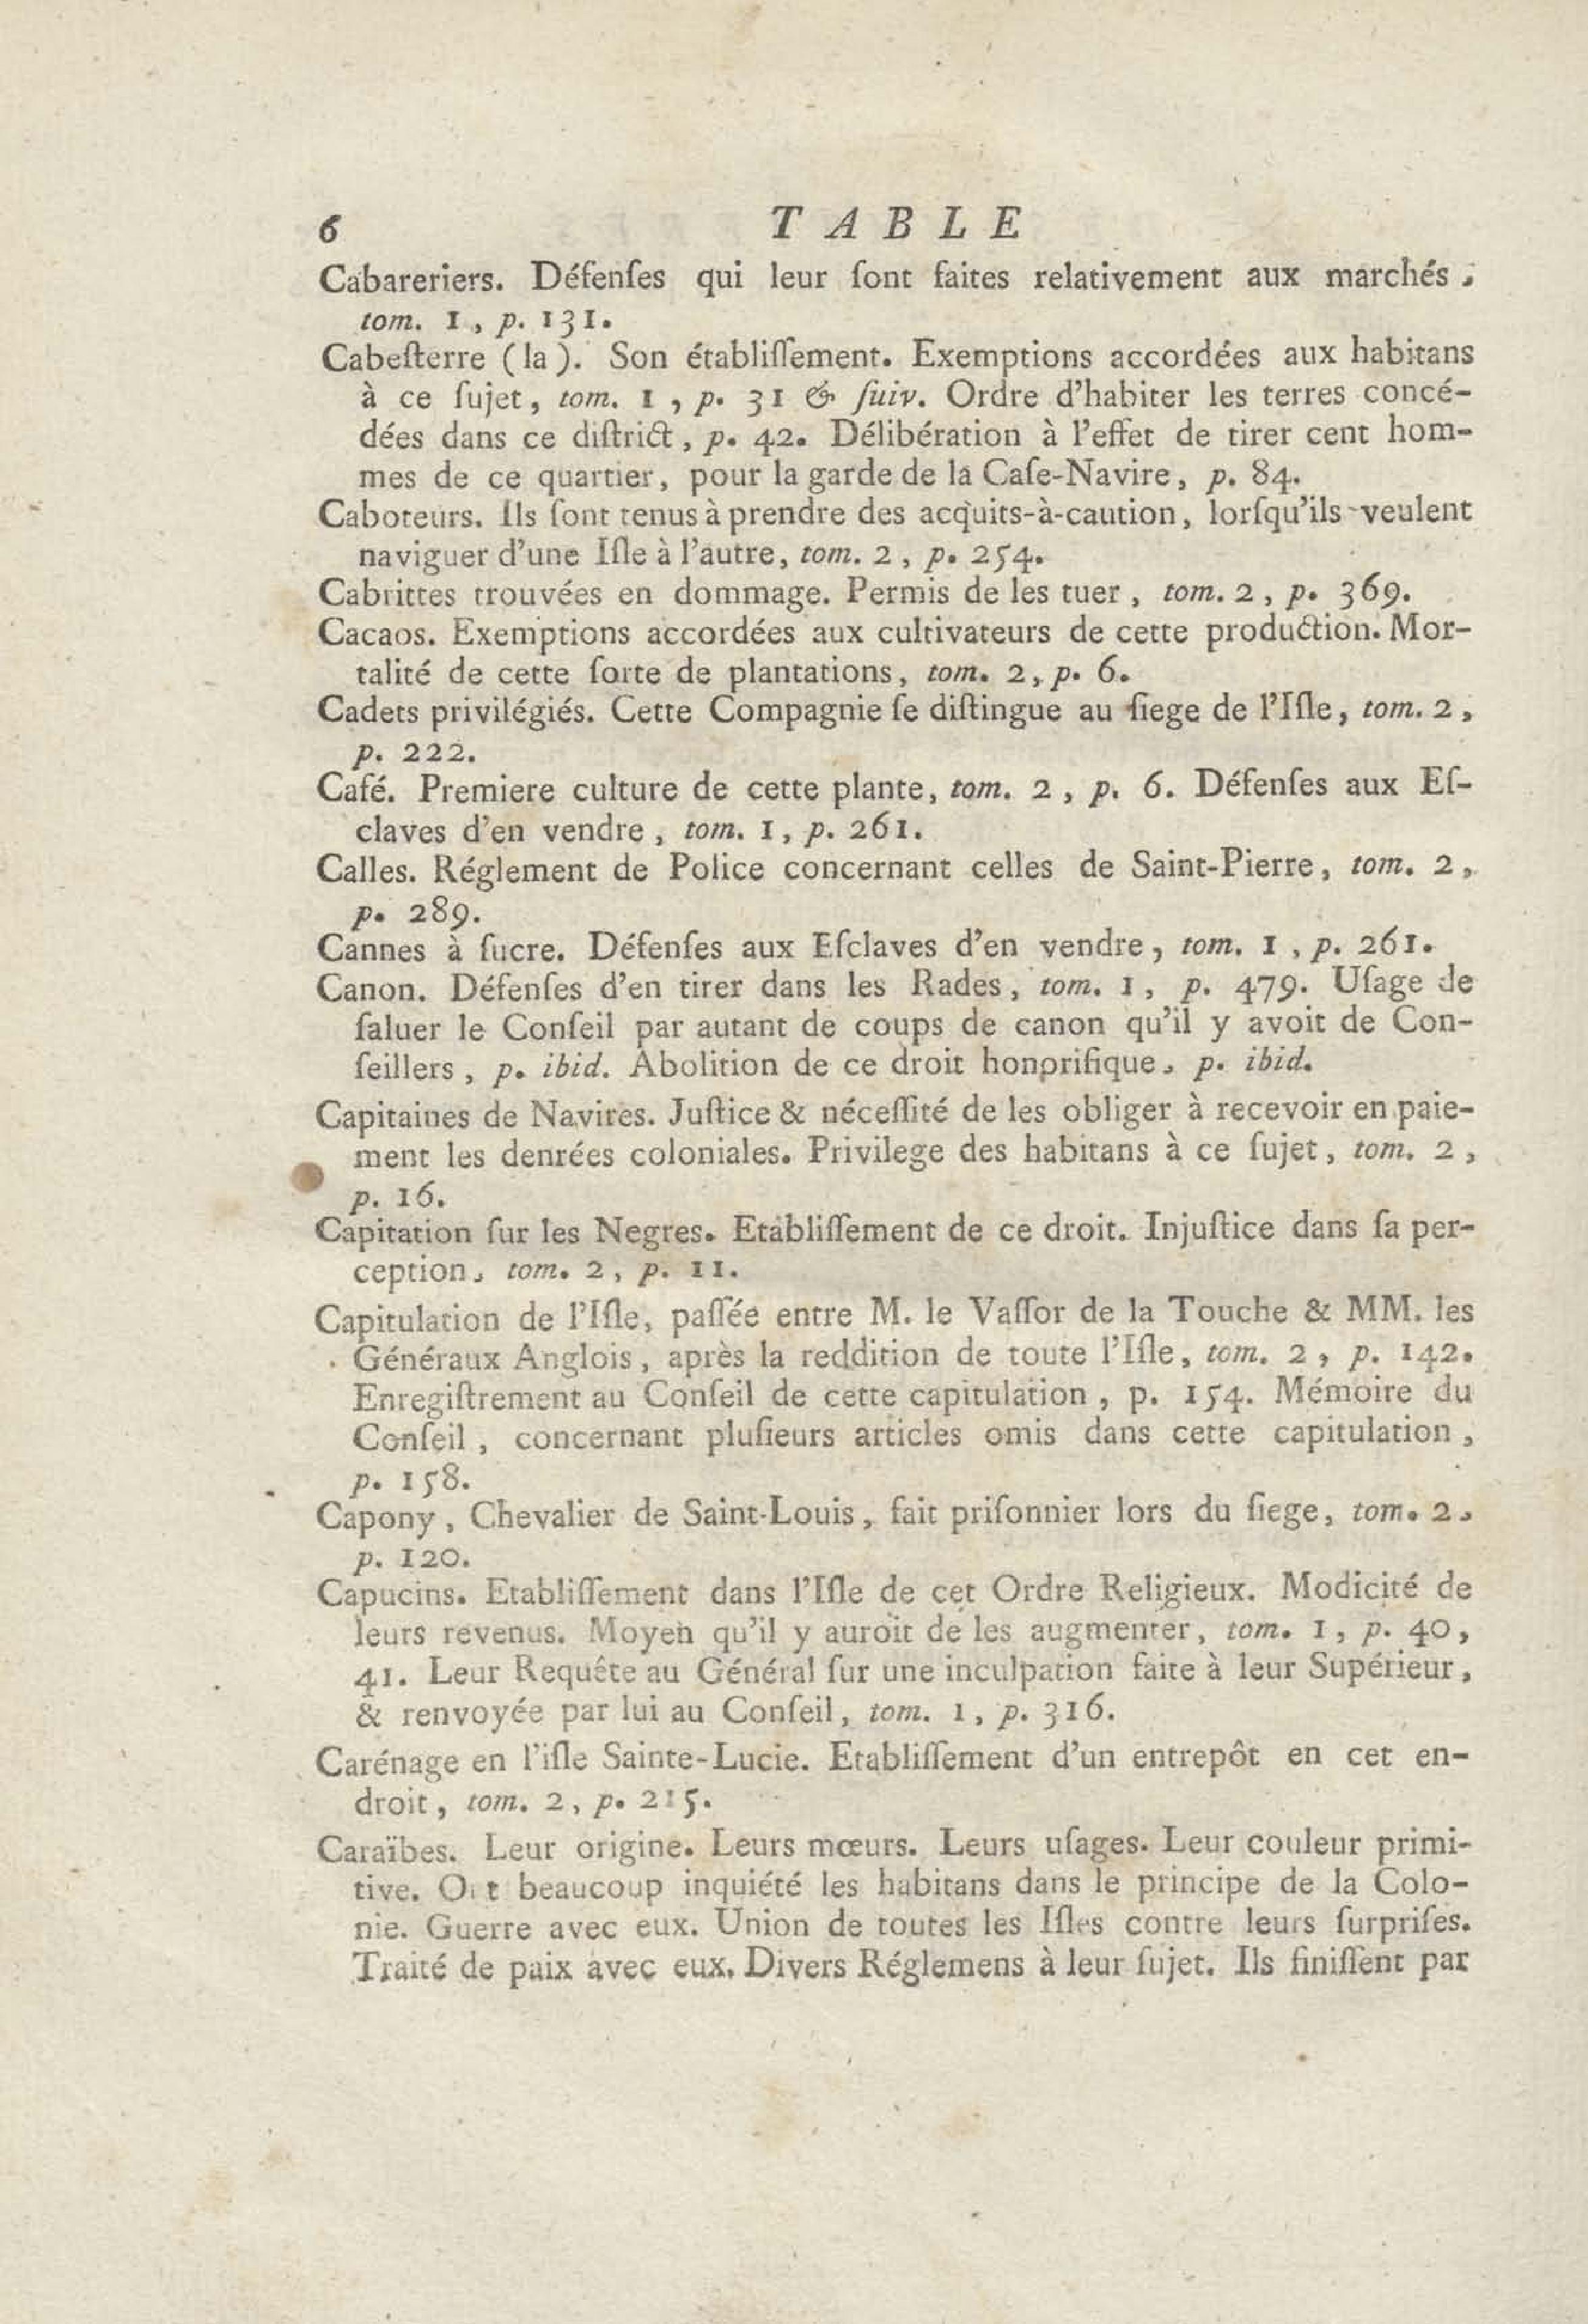 6 TABLE
Cabareriers. Défenſes qui leur ſont faites relativement aux marchés,
tom. 1, p. 131.
Cabeſterre (la). Son établiſſement. Exemptions accordées aux habitans
à ce ſujet, tom. 1, p. 31 & ſuiv. Ordre d'habiter les terres concé-
dées dans ce diſtrict, p. 42. Délibération à l'effet de tirer cent hom-
mes de ce quartier, pour la garde de la Caſe-Navire, p. 84.
Caboteurs. Ils ſont tenus à prendre des acquits-à-caution, lorſqu'ils veulent
naviguer d'une Iſle à l'autre, tom. 2, p. 254.
Cabrittes trouvées en dommage. Permis de les tuer, tom. 2, p. 369.
Cacaos. Exemptions accordées aux cultivateurs de cette production. Mor-
talité de cette ſorte de plantations, tom. 2, p. 6.
Cadets privilégiés. Cette Compagnie ſe diſtingue au ſiege de l'Iſle, tom. 2,
p. 222.
Café. Premiere culture de cette plante, tom. 2, p. 6. Défenſes aux Eſ-
claves d'en vendre, tom. 1, p. 261.
Calles. Réglement de Police concernant celles de Saint-Pierre, tom. 2,
p. 289.
Cannes à ſucre. Défenſes aux Eſclaves d'en vendre, tom. 1, p. 261.
Canon. Défenſes d'en tirer dans les Rades, tom. 1, p. 479. Uſage de
ſaluer le Conſeil par autant de coups de canon qu'il y avoit de Con-
ſeillers, p. ibid. Abolition de ce droit honorifique, p. ibid.
Capitaines de Navires. Juſtice & néceſſité de les obliger à recevoir en paie-
ment les denrées coloniales. Privilege des habitans à ce ſujet, tom. 2,
p. 16.
Capitation ſur les Negres. Etabliſſement de ce droit. Injuſtice dans ſa per-
ception, tom. 2, p. 11.
Capitulation de l'Iſle, paſſée entre M. le Vaſſor de la Touche & MM. les
Généraux Anglois, après la reddition de toute l'Iſle, tom. 2, p. 142.
Enregiſtrement au Conſeil de cette capitulation, p. 154. Mémoire du
Conſeil, concernant pluſieurs articles omis dans cette capitulation,
p. 158.
Capony, Chevalier de Saint-Louis, fait priſonnier lors du ſiege, tom. 2,
p. 120.
Capucins. Etabliſſement dans l'Iſle de cet Ordre Religieux. Modicité de
leurs revenus. Moyen qu'il y auroit de les augmenter, tom. 1, p. 40,
41. Leur Requête au Général ſur une inculpation faite à leur Supérieur,
& renvoyée par lui au Conſeil, tom. 1, p. 316.
Carénage en l'iſle Sainte-Lucie. Etabliſſement d'un entrepôt en cet en-
droit, tom. 2, p. 215.
Caraïbes. Leur origine. Leurs mœurs. Leurs uſages. Leur couleur primi-
tive. Ont beaucoup inquiété les habitans dans le principe de la Colo-
nie. Guerre avec eux. Union de toutes les Iſles contre leurs ſurpriſes.
Traité de paix avec eux. Divers Réglemens à leur ſujet. Ils finiſſent par